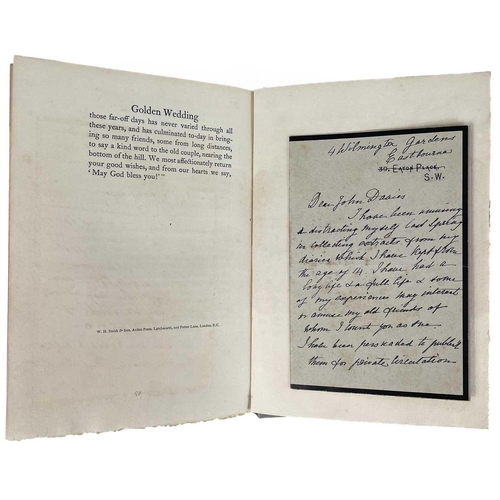 Golden Wedding
those far-off days has never varied through all
these years, and has culminated to-day in bring-
ing so many friends, some from long distances,
to say a kind word to the old couple, nearing the
bottom of the hill. We most affectionately return
your good wishes, and from our hearts we say,
'May God bless you!'"
W. H. Smith & Son, Arden Press, Letchworth, and Fetter Lane, London, E.C.
4 Wilmington Gardens
Eastbourne
30, Eaton Place,
S.W.
Dear John Davies
I have been amusing
& distracting myself last Spring
in collecting extracts from my
diaries which I have kept from
the age of 14. I have had a
long life & a full life & some
of my experiences may interest
or amuse my old friends of
whom I count you as one.
I have been persuaded to publish
them for private circulation